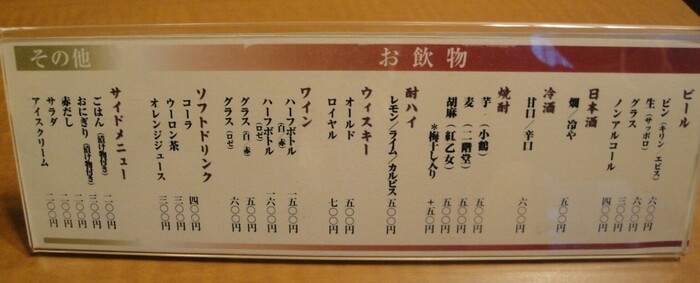 お飲物
ビール
ビン（キリン　エビス）　六〇〇円
生（サッポロ）　六〇〇円
グラス　三〇〇円
ノンアルコール　四〇〇円
日本酒
燗／冷や　五〇〇円
冷酒
甘口／辛口　六〇〇円
焼酎
芋（小鶴）　五〇〇円
麦（二階堂）　五〇〇円
胡麻（紅乙女）　五〇〇円
＊梅干し入り　＋五〇円
酎ハイ
レモン／ライム／カルピス　五〇〇円
ウィスキー
オールド　五〇〇円
ロイヤル　七〇〇円
ワイン
ハーフボトル（白・赤）　一五〇〇円
ハーフボトル（ロゼ）　一六〇〇円
グラス（白・赤）　五〇〇円
グラス（ロゼ）　六〇〇円
ソフトドリンク
コーラ　四〇〇円
ウーロン茶　三〇〇円
オレンジジュース　三〇〇円
その他
サイドメニュー
ごはん（漬け物付き）　二〇〇円
おにぎり（漬け物付き）　三〇〇円
赤だし　二〇〇円
サラダ　二〇〇円
アイスクリーム　二〇〇円